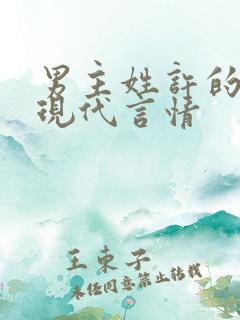 男主姓許的
現代言情
王束子
未经同意禁止转载